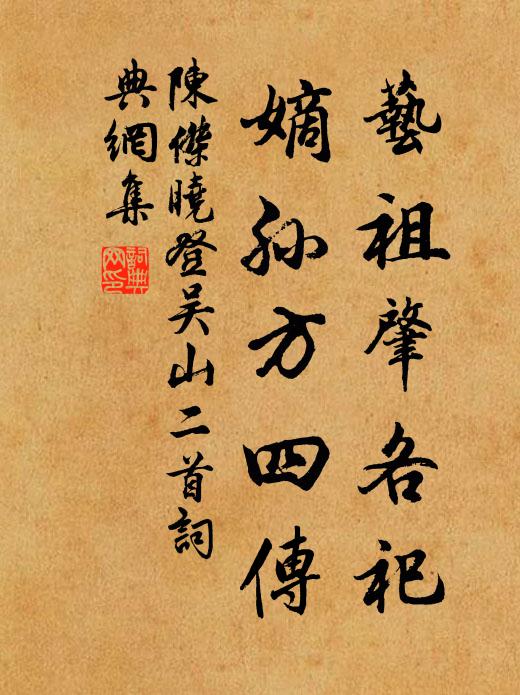 藝祖肇各祀
嫡孙方四傳
陳傑曉登吴山二首詞
典網集
詞典
网印